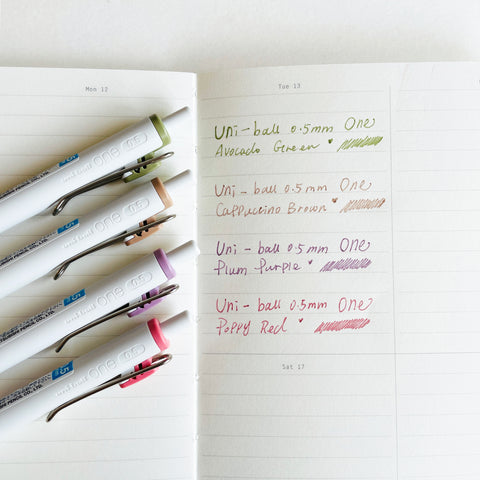 Mon 12
Tue 13
Uni-ball 0.5mm One
Avocado Green ♥
Uni-ball 0.5mm One
Cappuccino Brown ♥
Uni-ball 0.5mm One
Plum Purple ♥
Uni-ball 0.5mm One
Poppy Red ♥
Sat 17
uni-ball one 0.5
uni-ball one 0.5
uni-ball one 0.5
uni-ball one 0.5